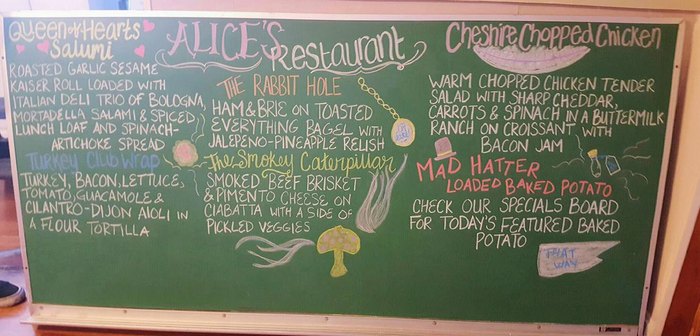 ALICE'S Restaurant
Queen of Hearts
Salumi
ROASTED GARLIC SESAME
KAISER ROLL LOADED WITH
ITALIAN DELI TRIO OF BOLOGNA,
MORTADELLA SALAMI & SPICED
LUNCH LOAF AND SPINACH-
ARTICHOKE SPREAD
Turkey Club Wrap
TURKEY, BACON, LETTUCE,
TOMATO, GUACAMOLE &
CILANTRO-DIJON AIOLI IN
A FLOUR TORTILLA
THE RABBIT HOLE
HAM & BRIE ON TOASTED
EVERYTHING BAGEL WITH
JALEPENO-PINEAPPLE RELISH
The Smokey Caterpillar
SMOKED BEEF BRISKET
& PIMENTO CHEESE ON
CIABATTA WITH A SIDE OF
PICKLED VEGGIES
Cheshire Chopped Chicken
WARM CHOPPED CHICKEN TENDER
SALAD WITH SHARP CHEDDAR,
CARROTS & SPINACH IN A BUTTERMILK
RANCH ON CROISSANT WITH
BACON JAM
MAD HATTER
LOADED BAKED POTATO
CHECK OUR SPECIALS BOARD
FOR TODAY'S FEATURED BAKED
POTATO
THAT
WAY